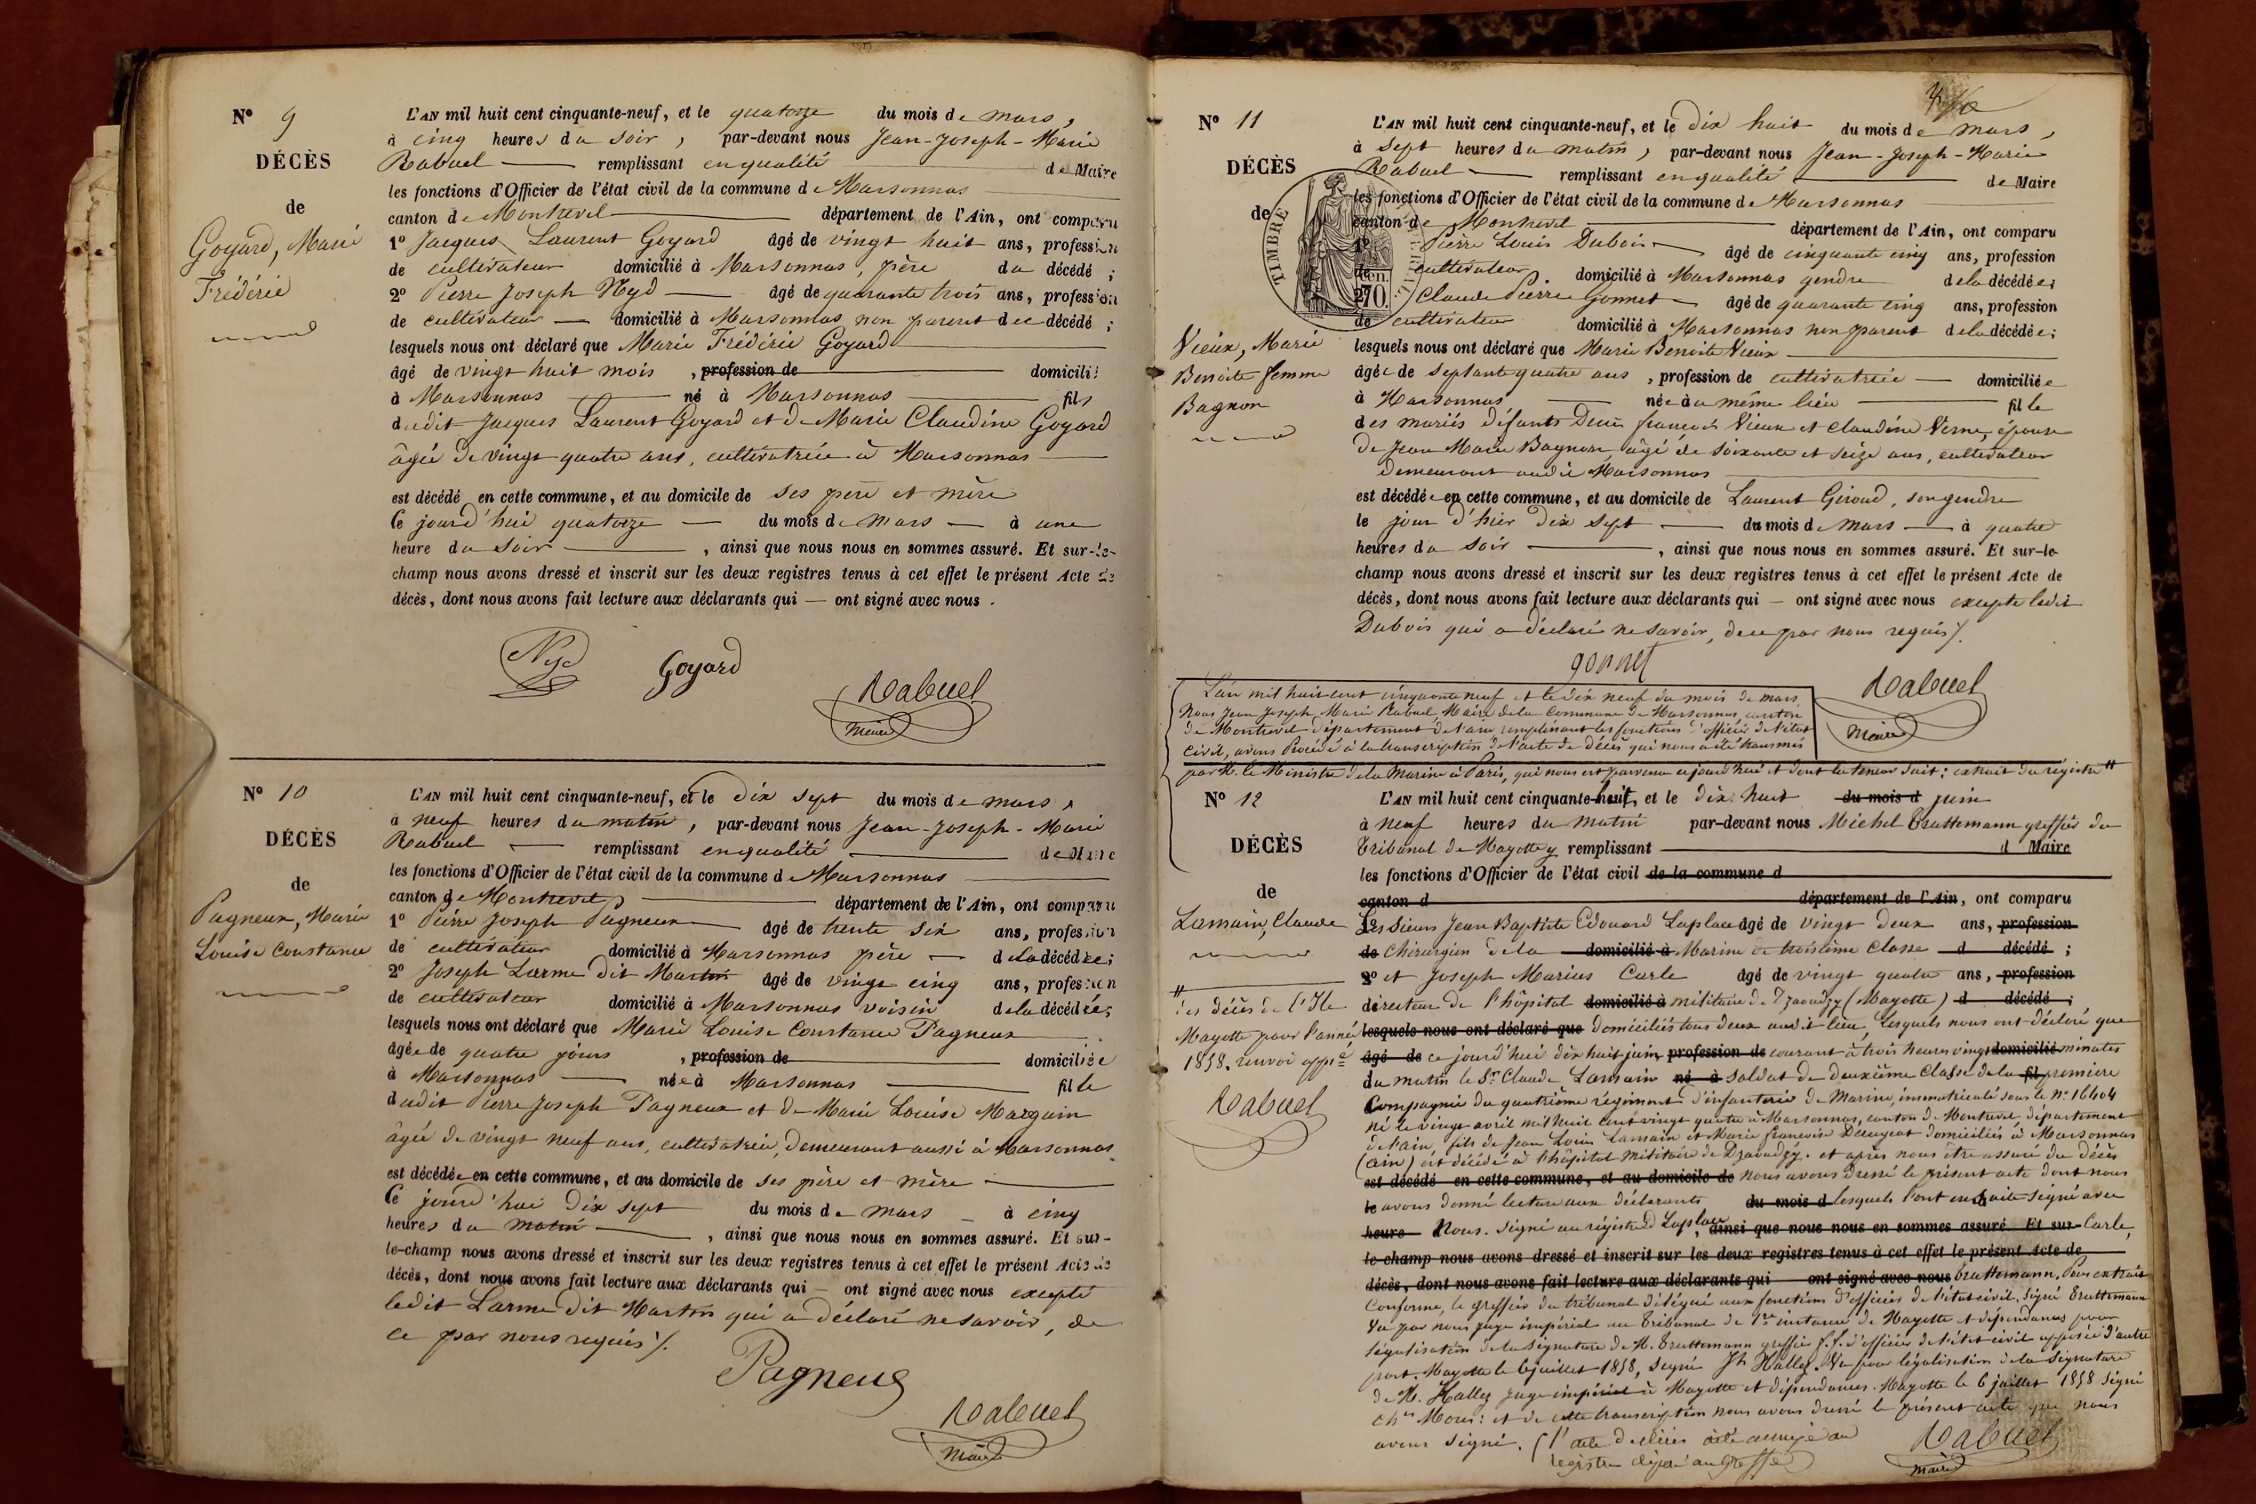 N° 9
DÉCÈS
de
Goyard, Marie
Frédéric
L'AN mil huit cent cinquante-neuf, et le quatorze du mois de mars,
à cinq heures du soir, par-devant nous Jean-Joseph-Marie
Rabuel remplissant en qualité de Maire
les fonctions d'Officier de l'état civil de la commune de Marsonnas
canton de Montrevel département de l'Ain, ont comparu
1° Jacques Laurent Goyard âgé de vingt huit ans, profession
de cultivateur domicilié à Marsonnas, père du décédé ;
2° Pierre Joseph Nyd âgé de quarante trois ans, profession
de cultivateur domicilié à Marsonnas non parent du décédé ;
lesquels nous ont déclaré que Marie Frédéric Goyard
âgé de vingt huit mois, profession de domicilié
à Marsonnas né à Marsonnas fils
dudit Jacques Laurent Goyard et de Marie Claudine Goyard
âgée de vingt quatre ans, cultivatrice à Marsonnas
est décédé en cette commune, et au domicile de ses père et mère
Ce jourd'hui quatorze du mois de mars à une
heure du soir, ainsi que nous nous en sommes assuré. Et sur-le-
champ nous avons dressé et inscrit sur les deux registres tenus à cet effet le présent Acte de
décès, dont nous avons fait lecture aux déclarants qui — ont signé avec nous.
Nyd Goyard Rabuel
Maire
N° 10
DÉCÈS
de
Pagneux, Marie
Louise Constance
L'AN mil huit cent cinquante-neuf, et le dix sept du mois de mars,
à neuf heures du matin, par-devant nous Jean-Joseph-Marie
Rabuel remplissant en qualité de Maire
les fonctions d'Officier de l'état civil de la commune de Marsonnas
canton de Montrevel département de l'Ain, ont comparu
1° Pierre Joseph Pagneux âgé de trente six ans, profession
de cultivateur domicilié à Marsonnas père de la décédée ;
2° Joseph Larme dit Martin âgé de vingt cinq ans, profession
de cultivateur domicilié à Marsonnas voisin de la décédée ;
lesquels nous ont déclaré que Marie Louise Constance Pagneux
âgée de quatre jours, profession de domiciliée
à Marsonnas née à Marsonnas fille
dudit Pierre Joseph Pagneux et de Marie Louise Mazguin
âgée de vingt neuf ans, cultivatrice, demeurant aussi à Marsonnas
est décédée en cette commune, et au domicile de ses père et mère
Ce jourd'hui dix sept du mois de mars à cinq
heures du matin, ainsi que nous nous en sommes assuré. Et sur-
le-champ nous avons dressé et inscrit sur les deux registres tenus à cet effet le présent Acte de
décès, dont nous avons fait lecture aux déclarants qui — ont signé avec nous excepté
ledit Larme dit Martin qui a déclaré ne savoir, de
ce par nous requis /.
Pagneux
Rabuel
Maire
N° 11
DÉCÈS
de
TIMBRE
Vieux, Marie
Benoite femme
Bagnon
L'AN mil huit cent cinquante-neuf, et le dix huit du mois de mars,
à sept heures du matin, par-devant nous Jean-Joseph-Marie
Rabuel remplissant en qualité de Maire
les fonctions d'Officier de l'état civil de la commune de Marsonnas
canton de Montrevel département de l'Ain, ont comparu
1° Pierre Louis Dubois âgé de cinquante cinq ans, profession
de cultivateur domicilié à Marsonnas gendre de la décédée ;
2° Claude Pierre Gonnet âgé de quarante cinq ans, profession
de cultivateur domicilié à Marsonnas non parent de la décédée ;
lesquels nous ont déclaré que Marie Benoite Vieux
âgée de septante quatre ans, profession de cultivatrice domiciliée
à Marsonnas née à u même lieu fille
des mariés défunts Denis françois Vieux et Claudine Verne, épouse
de Jean Marie Bagnon, âgé de soixante et seize ans, cultivateur
demeurant audit Marsonnas
est décédée en cette commune, et au domicile de Laurent Giroud, son gendre
le jour d'hier dix sept du mois de mars à quatre
heures du soir, ainsi que nous nous en sommes assuré. Et sur-le-
champ nous avons dressé et inscrit sur les deux registres tenus à cet effet le présent Acte de
décès, dont nous avons fait lecture aux déclarants qui — ont signé avec nous excepté ledit
Dubois qui a déclaré ne savoir, de ce par nous requis /.
gonnet
Rabuel
Maire
L'an mil huit cent cinquante neuf et le dix neuf du mois de mars
Nous Jean Joseph Marie Rabuel, Maire de la commune de Marsonnas, canton
de Montrevel département de l'ain remplissant les fonctions d'officier de l'état
civil, avons Procédé à la transcription de l'acte de décès qui nous a été transmis
par M. le Ministre de la Marine à Paris, qui nous est parvenu ce jourd'hui et dont la teneur suit : extrait du registre "
N° 12
DÉCÈS
de
Lamain, Claude
" des décès de l'Ile
Mayotte pour l'année
1858. renvoi appé
Rabuel
L'AN mil huit cent cinquante-huit, et le dix huit du mois d juin
à neuf heures du matin par-devant nous Michel Truttemann greffier du
Tribunal de Mayotte y remplissant d Maire
les fonctions d'Officier de l'état civil de la commune d
canton d département de l'Ain, ont comparu
Les sieurs Jean Baptiste Edouard Laplace âgé de vingt deux ans, profession
de Chirurgien de la domicilié à Marine de troisième classe d décédé ;
2° et Joseph Marius Carle âgé de vingt quatre ans, profession
directeur de l'hôpital domicilié à militaire de Dzaoudzy (Mayotte) d décédé ;
lesquels nous ont déclaré que domiciliés tous deux audit lieu, Lesquels nous ont déclaré que
âgé de ce jourd'hui dix huit juin profession de courant à trois heures vingt domicilié minutes
du matin le Sr. Claude Lamain né à soldat de deuxième classe de la fil première
Compagnie du quatrième régiment d'infanterie de Marine, immatriculé sous le N° 16404
né le vingt avril mil huit cent vingt quatre à Marsonnas, canton de Montrevel département
de l'ain, fils de Jean Louis Lamain et Marie françoise domiciliés à Marsonnas
(ain) est décédé à l'hôpital militaire de Dzaoudzy. et après nous être assuré du décès
est décédé en cette commune, et au domicile de nous avons dressé le présent acte dont nous
le avons donné lecture aux déclarants du mois d lesquels l'ont ensuite signé avec
heure Nous. Signé au registre Laplace, ainsi que nous nous en sommes assuré. Et sur- Carle,
le-champ nous avons dressé et inscrit sur les deux registres tenus à cet effet le présent Acte de
décès, dont nous avons fait lecture aux déclarants qui ont signé avec nous Truttemann, Pour extrait
Conforme, le greffier du tribunal délégué aux fonctions d'officier de l'état civil, signé Truttemann
Vu par nous juge impérial au Tribunal de 1re instance de Mayotte et dépendances pour
légalisation de la signature de M. Truttemann greffier f.f. d'officier de l'état civil apposée d'autre
part. Mayotte le 6 juillet 1858, signé Jh Hallez. Vu pour légalisation de la signature
de M. Hallez juge impérial à Mayotte et dépendances. Mayotte le 6 juillet 1858 signé
Morel : et de cette transcription nous avons dressé le présent acte que nous
avons signé. (l'acte de décès a été annexé au
registre déposé au Greffe)
Rabuel
Maire